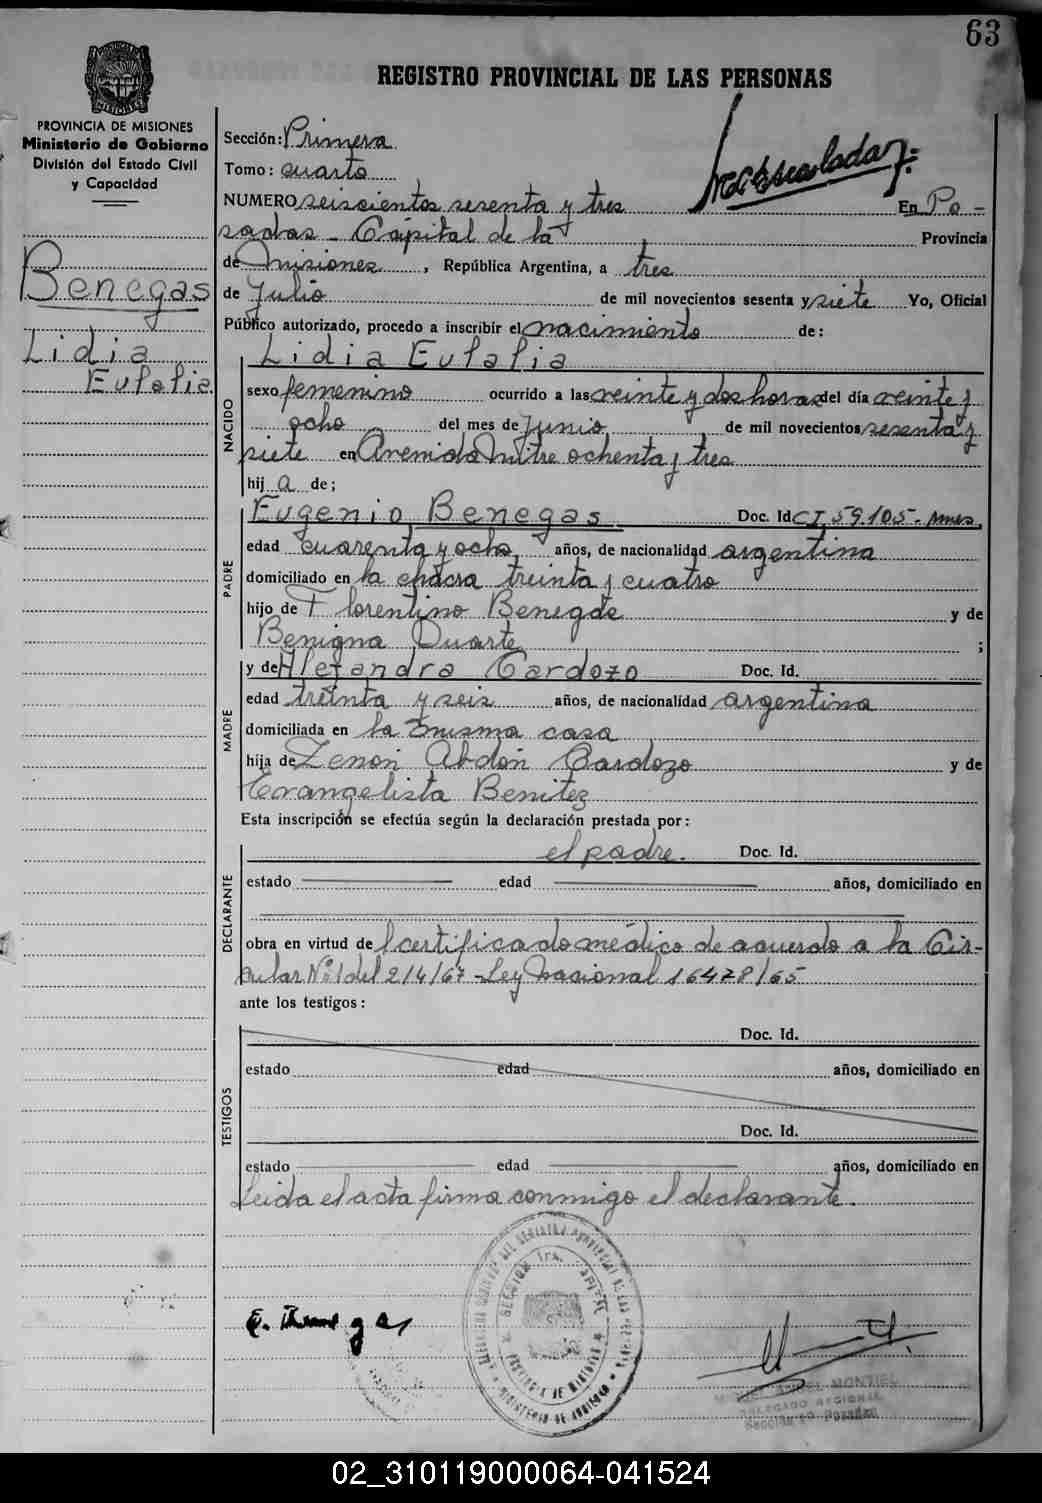 63
REGISTRO PROVINCIAL DE LAS PERSONAS
PROVINCIA DE MISIONES
Ministerio de Gobierno
División del Estado Civil
y Capacidad
Benegas
Lidia
Eulalia
Sección: Primera
Tomo: cuarto
NUMERO seiscientos sesenta y tres En Po-
sadas - Capital de la Provincia
de Misiones, República Argentina, a tres
de Julio de mil novecientos sesenta y siete Yo, Oficial
Público autorizado, procedo a inscribir el nacimiento de:
Lidia Eulalia
NACIDO
sexo femenino ocurrido a las veinte y dos horas del día veinte y
ocho del mes de Junio de mil novecientos sesenta y
siete en Avenida Mitre ochenta y tres
hij a de;
PADRE
Eugenio Benegas Doc. Id. CI 59.105.
edad cuarenta y ocho años, de nacionalidad argentina
domiciliado en la chacra treinta y cuatro
hijo de Florentino Benegas y de
Benigna Duarte ;
MADRE
y de Alejandra Cardozo Doc. Id.
edad treinta y seis años, de nacionalidad argentina
domiciliada en la misma casa
hija de Zenón Abdón Cardozo y de
Evangelista Benitez
Esta inscripción se efectúa según la declaración prestada por:
DECLARANTE
el padre. Doc. Id.
estado edad años, domiciliado en
obra en virtud de l certificado médico de acuerdo a la Cir-
cular Nº 1 del 2/4/67 - Ley Nacional 16478/65
ante los testigos:
TESTIGOS
Doc. Id.
estado edad años, domiciliado en
Doc. Id.
estado edad años, domiciliado en
Leida el acta firma conmigo el declarante.
E. Benegas
MIGUEL ANGEL MONTIEL
DELEGADO REGIONAL
02_310119000064-041524